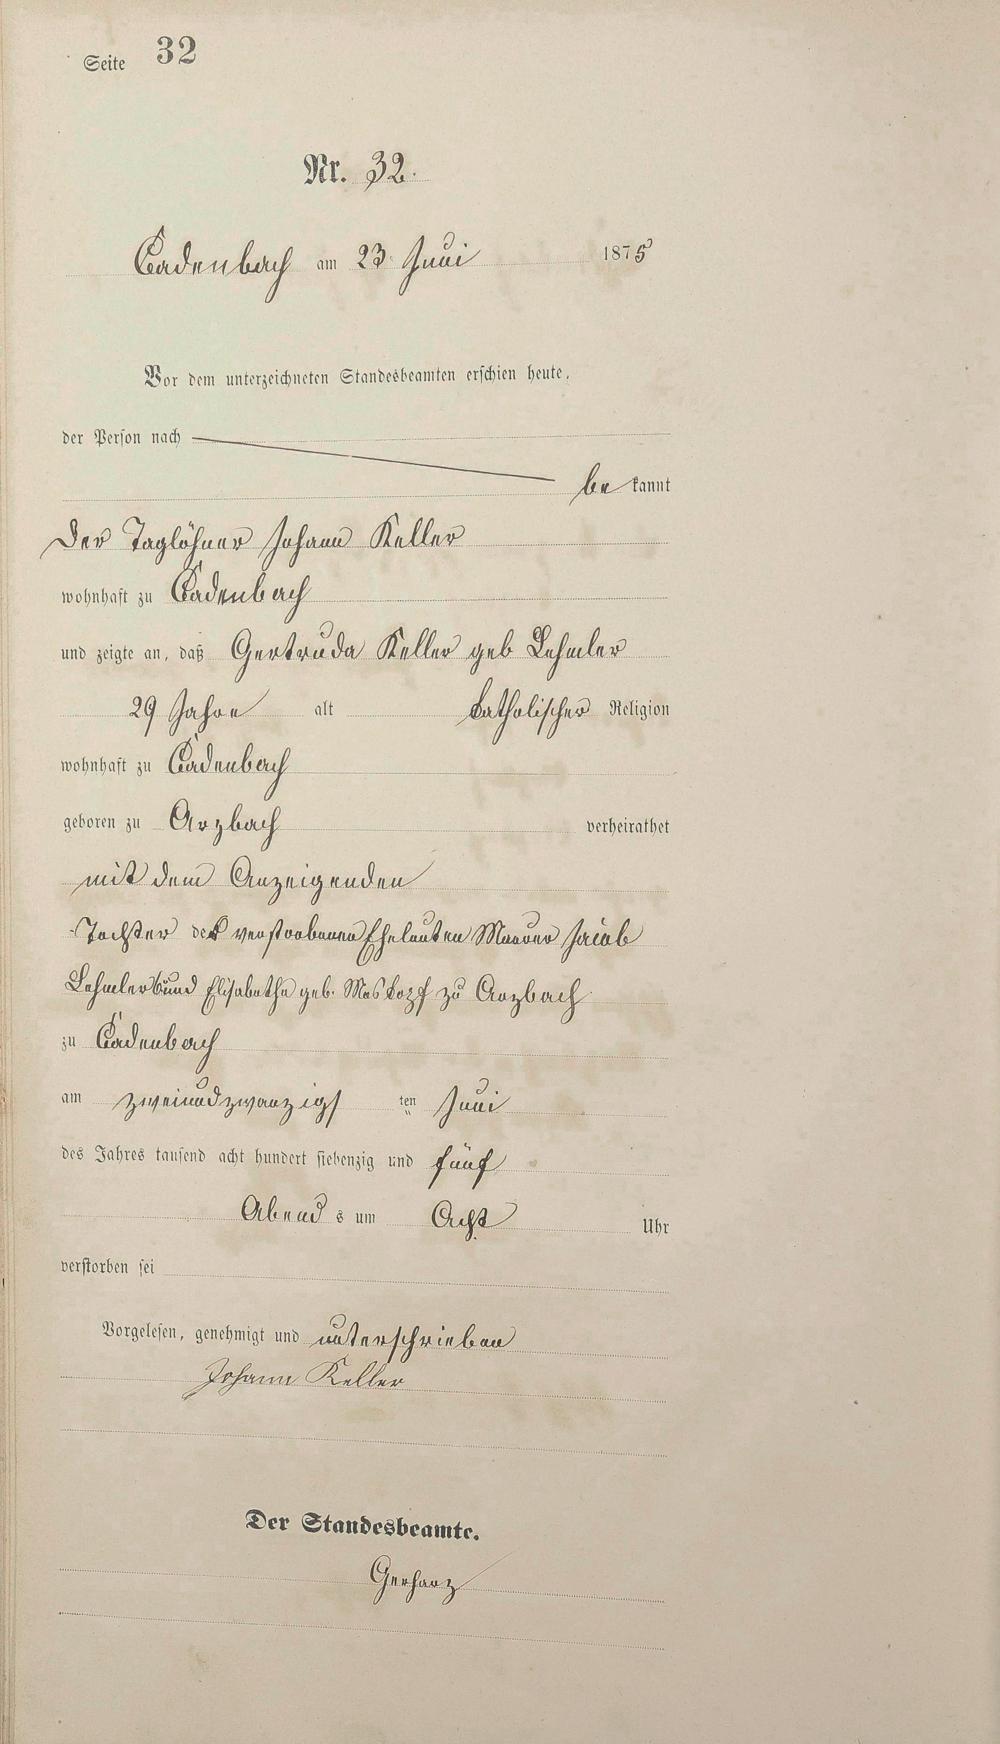 Seite 32
Nr. 32.
Cadenbach am 23 Juni 1875
Vor dem unterzeichneten Standesbeamten erschien heute,
der Person nach
be kannt
Der Taglöhner Johann Keller
wohnhaft zu Cadenbach
und zeigte an, daß Gertruda Keller geb Lehmler
29 Jahre alt katholischer Religion
wohnhaft zu Cadenbach
geboren zu Arzbach verheirathet
mit dem Anzeigenden
Tochter der verstorbenen Eheleuten Maurer Jacob
Lehmler und Elisabetha geb. Maskopf zu Arzbach
zu Cadenbach
am zweiundzwanzigs ten Juni
des Jahres tausend acht hundert siebenzig und fünf
Abend s um Acht Uhr
verstorben sei
Vorgelesen, genehmigt und unterschrieben
Johann Keller
Der Standesbeamte.
Gerharz